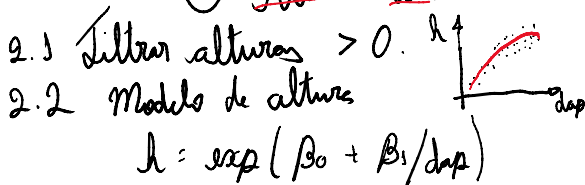 2.1 Filtrar alturas > 0.
h
dap
2.2 Modelo de altura
h = exp(β0 + β1/dap)